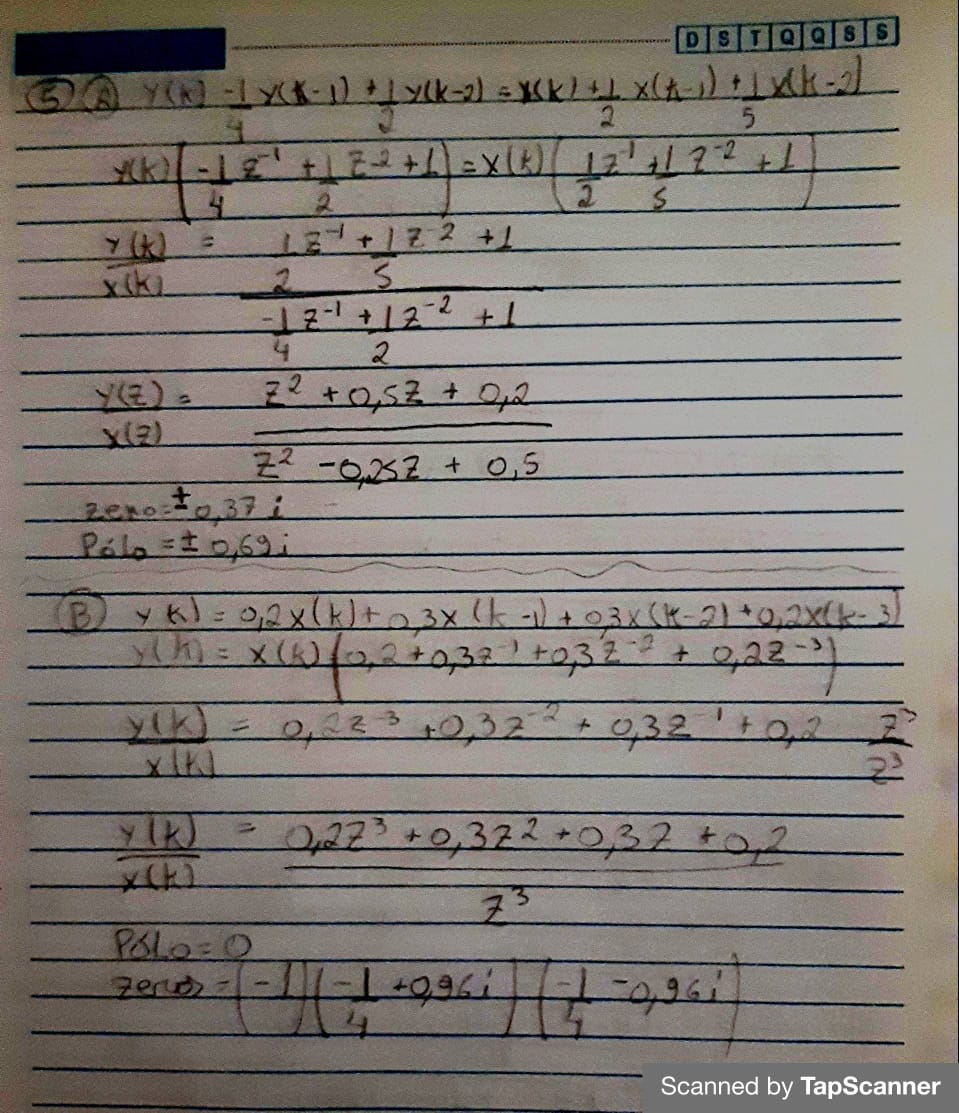 D S T Q Q S S
5 A Y(k) -1/4 y(k-1) + 1/2 y(k-2) = x(k) + 1/2 x(k-1) + 1/5 x(k-2)
y(k) (-1/4 z⁻¹ + 1/2 z⁻² + 1) = x(k) (1/2 z⁻¹ + 1/5 z⁻² + 1)
y(k) = 1/2 z⁻¹ + 1/5 z⁻² + 1
x(k)
-1/4 z⁻¹ + 1/2 z⁻² + 1
Y(z) = z² + 0,5z + 0,2
X(z)
z² - 0,25z + 0,5
zero = ± 0,37 i
Pólo = ± 0,69 i
B y k) = 0,2x(k) + 0,3x(k-1) + 0,3x(k-2) + 0,2x(k-3)
y(k) = x(k) (0,2 + 0,3z⁻¹ + 0,3z⁻² + 0,2z⁻³)
y(k) = 0,2z⁻³ + 0,3z⁻² + 0,3z⁻¹ + 0,2 z³
x(k) z³
y(k) = 0,2z³ + 0,3z² + 0,3z + 0,2
x(k)
z³
Pólo = 0
zeros = (-1) (-1/4 + 0,96 i) (-1/4 - 0,96 i)
Scanned by TapScanner